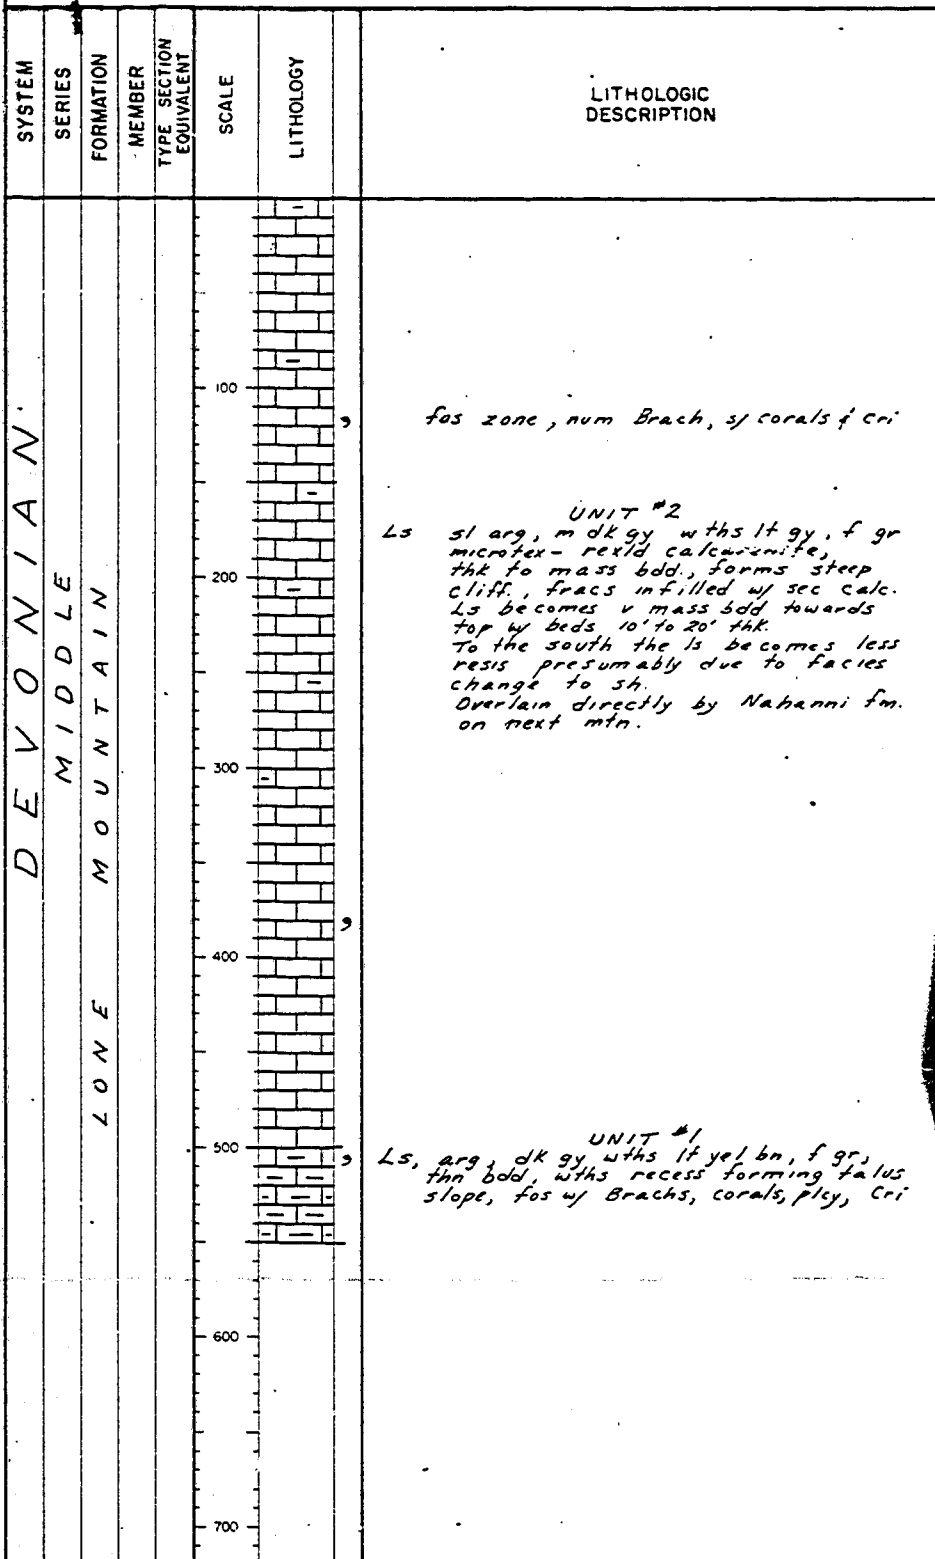 SYSTEM
SERIES
FORMATION
MEMBER
TYPE SECTION
EQUIVALENT
SCALE
LITHOLOGY
LITHOLOGIC
DESCRIPTION
DEVONIAN
MIDDLE
LONE MOUNTAIN
100
fos zone, num Brach, s/ corals & cri
UNIT #2
Ls sl arg, m dk gy w ths lt gy, f gr
microtex - rexld calcarenite,
thk to mass bdd., forms steep
cliff., fracs infilled w/ sec calc.
Ls becomes v mass bdd towards
top w/ beds 10' to 20' thk.
To the south the ls becomes less
resis presumably due to facies
change to sh.
Overlain directly by Nahanni fm.
on next mtn.
200
300
400
500
UNIT #1
Ls, arg, dk gy wths lt yel bn, f gr,
thn bdd, wths recess forming talus
slope, fos w/ Brachs, corals, plcy, Cri
600
700